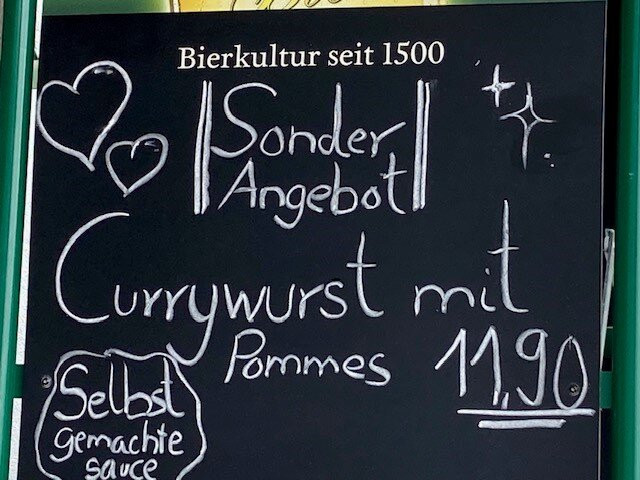 Bierkultur seit 1500
Sonder
Angebot
Currywurst mit
Pommes 11,90
Selbst
gemachte
sauce